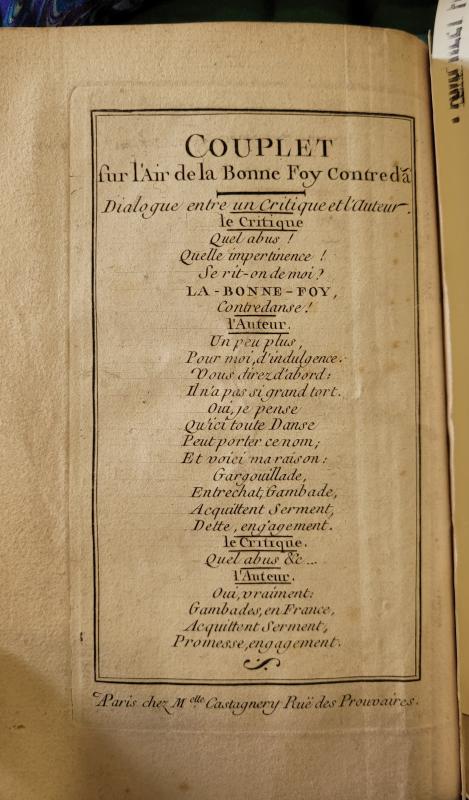 COUPLET
sur l'Air de la Bonne Foy Contred.ã
Dialogue entre un Critique et l'Auteur.
le Critique
Quel abus !
Quelle impertinence !
Se rit-on de moi ?
LA-BONNE-FOY,
Contredanse !
l'Auteur.
Un peu plus,
Pour moi, d'indulgence.
Vous direz d'abord:
Il n'a pas si grand tort.
Oui, je pense
Qu'ici toute Danse
Peut porter ce nom;
Et voici ma raison:
Gargouillade,
Entrechat, Gambade,
Acquittent Serment,
Dette, engagement.
le Critique.
Quel abus &c...
l'Auteur.
Oui, vraiment:
Gambades, en France,
Acquittent Serment,
Promesse, engagement.
Paris chez M.elle Castagnery Ruë des Prouvaires.